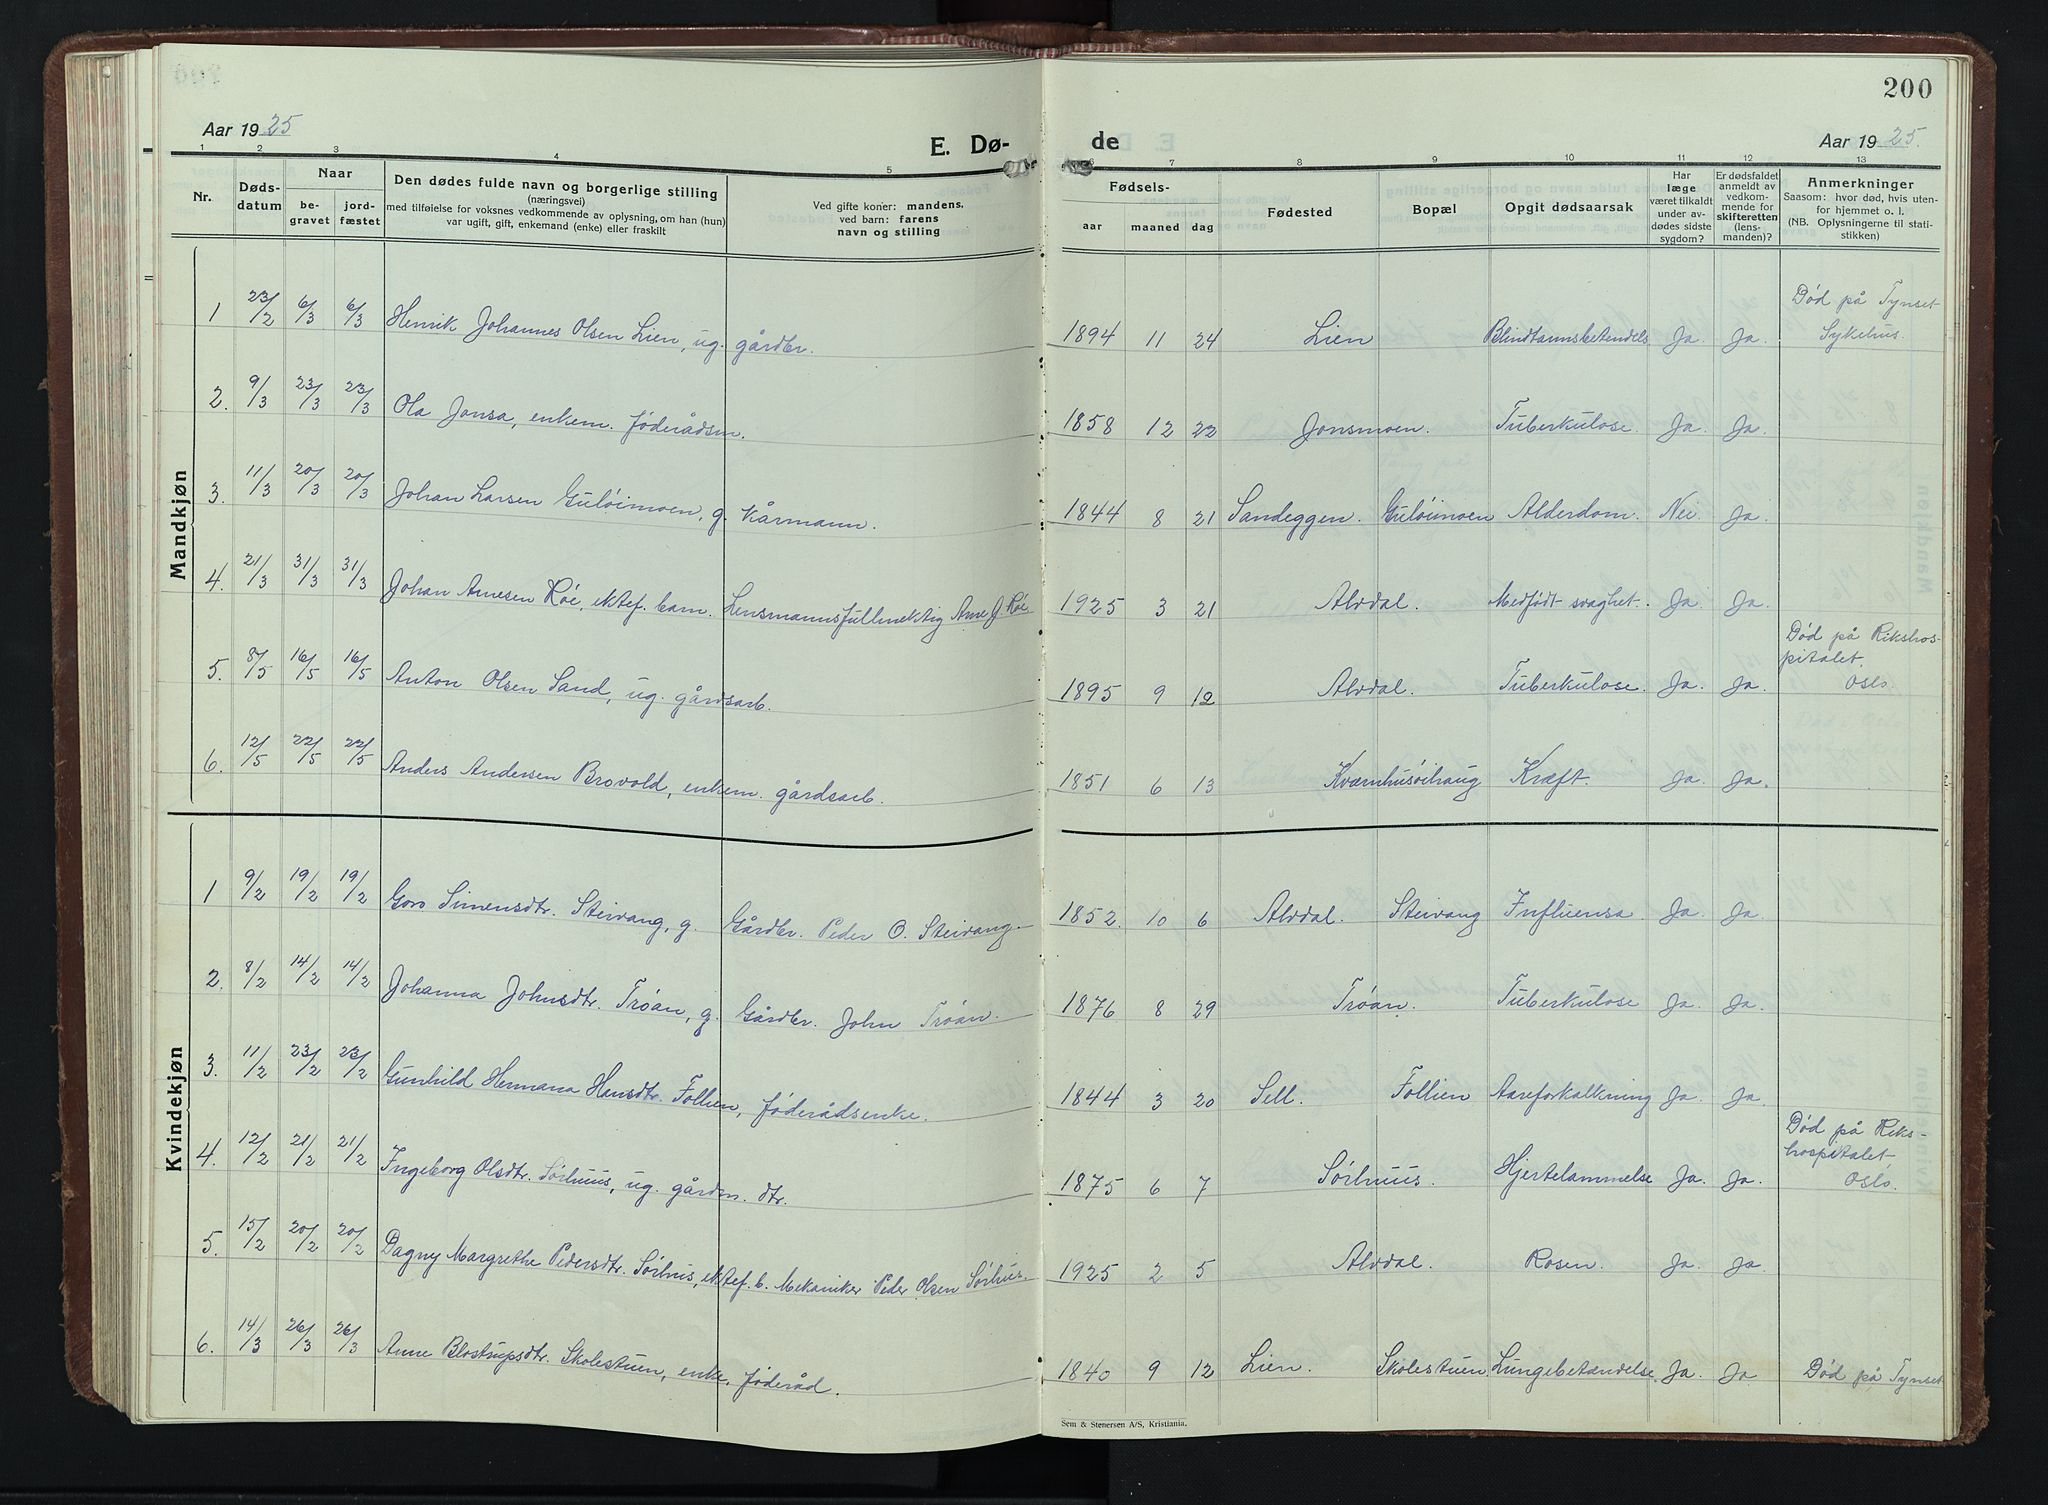 200
Aar 1925
E. Dø-
de
Aar 1925.
1 2 3 4 5 6 7 8 9 10 11 12 13
Nr.
Døds-
datum
Naar
be-
gravet
jord-
fæstet
Den dødes fulde navn og borgerlige stilling
(næringsvei)
med tilføielse for voksnes vedkommende av oplysning, om han (hun)
var ugift, gift, enkemand (enke) eller fraskilt
Ved gifte koner: mandens,
ved barn: farens
navn og stilling
Fødsels-
aar maaned dag
Fødested
Bopæl
Opgit dødsaarsak
Har
læge
været tilkaldt
under av-
dødes sidste
sygdom?
Er dødsfaldet
anmeldt av
vedkom-
mende for
skifteretten
(lens-
manden)?
Anmerkninger
Saasom: hvor død, hvis uten-
for hjemmet o. l.
(NB. Oplysningerne til stati-
stikken)
Mandkjøn
1 23/2 6/3 6/3 Henrik Johannes Olsen Lien, ug. gårdbr. 1894 11 24 Lien Blindtarmsbetendels Ja. Ja. Død på Tynset
Sykehus.
2. 9/3 23/3 23/3 Ola Jonsa, enkem. føderådsm. 1858 12 22 Jonsmoen. Tuberkulose. Ja. Ja.
3. 11/3 20/3 20/3 Johan Larsen Guløimoen, g. kårmann. 1844 8 21 Sandeggen. Guløimoen Alderdom. Nei. Ja.
4. 21/3 31/3 31/3 Johan Arnesen Røe, ektef. barn. Lensmannsfullmektig Arne J. Røe 1925 3 21 Alvdal. Medfødt svaghet. Ja. Ja.
5. 8/5 16/5 16/5 Anton Olsen Sand, ug. gårdsarb. 1895 9 12 Alvdal. Tuberkulose. Ja. Ja. Død på Rikshos-
pitalet,
Oslo.
6. 12/5 22/5 22/5 Anders Andersen Brovold, enkem. gårdsarb. 1851 6 13 Kværnhusøihaug Kræft. Ja. Ja.
Kvindekjøn
1 9/2 19/2 19/2 Goro Simensdtr. Steivang, g. Gårdbr. Peder O. Steivang. 1852. 10 6 Alvdal. Steivang Influensa Ja. Ja.
2. 8/2 14/2 14/2 Johanna Johnsdtr. Trøan, g. Gårdbr. John Trøan. 1876 8 29 Trøan. Tuberkulose Ja. Ja.
3. 11/2 23/2 23/2 Gunhild Hermana Hansdtr. Follien, føderådsenke. 1844 3 20 Sell. Follien Aareforkalkning Ja. Ja.
4. 12/2 21/2 21/2 Ingeborg Olsdtr. Sørhuus, ug. gårdm. dtr. 1875 6 7 Sørhuus. Hjertelammelse Ja. Ja. Død på Riks-
hospitalet,
Oslo.
5. 15/2 20/2 20/2 Dagny Margrethe Pedersdtr. Sørhus, ektef. b. Mekaniker Peder Olsen Sørhus. 1925 2 5 Alvdal. Rosen. Ja. Ja.
6. 14/3 26/3 26/3 Anne Blostrupsdtr. Skolestuen, enke, føderåd. 1840 9 12 Lien. Skolestuen Lungebetændelse. Ja. Ja Død på Tynset
Sem & Stenersen A/S, Kristiania.